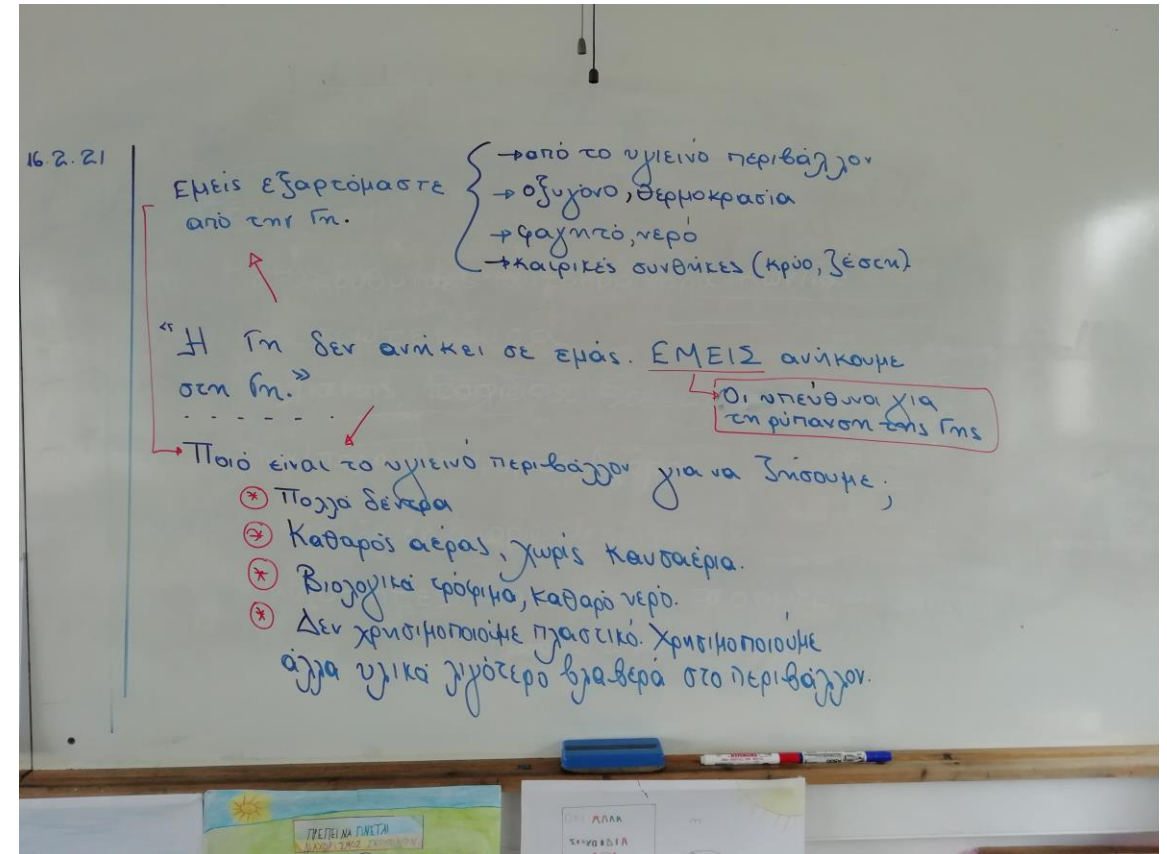 16.2.21
Εμείς εξαρτόμαστε
από την Γη.
→από το υγιεινό περιβάλλον
→οξυγόνο, θερμοκρασία
→φαγητό, νερό
→καιρικές συνθήκες (κρύο, ζέστη)
"Η Γη δεν ανήκει σε εμάς. ΕΜΕΙΣ ανήκουμε
στη Γη."
Οι υπεύθυνοι για
τη ρύπανση της Γης
Ποιό είναι το υγιεινό περιβάλλον για να ζήσουμε;
* Πολλά δέντρα
* Καθαρός αέρας, χωρίς καυσαέρια.
* Βιολογικά τρόφιμα, καθαρό νερό.
* Δεν χρησιμοποιούμε πλαστικό. Χρησιμοποιούμε
άλλα υλικά λιγότερο βλαβερά στο περιβάλλον.
ΠΡΕΠΕΙ ΝΑ ΓΙΝΕΤΑΙ
ΣΚΟΥΠΙΔΙΑ